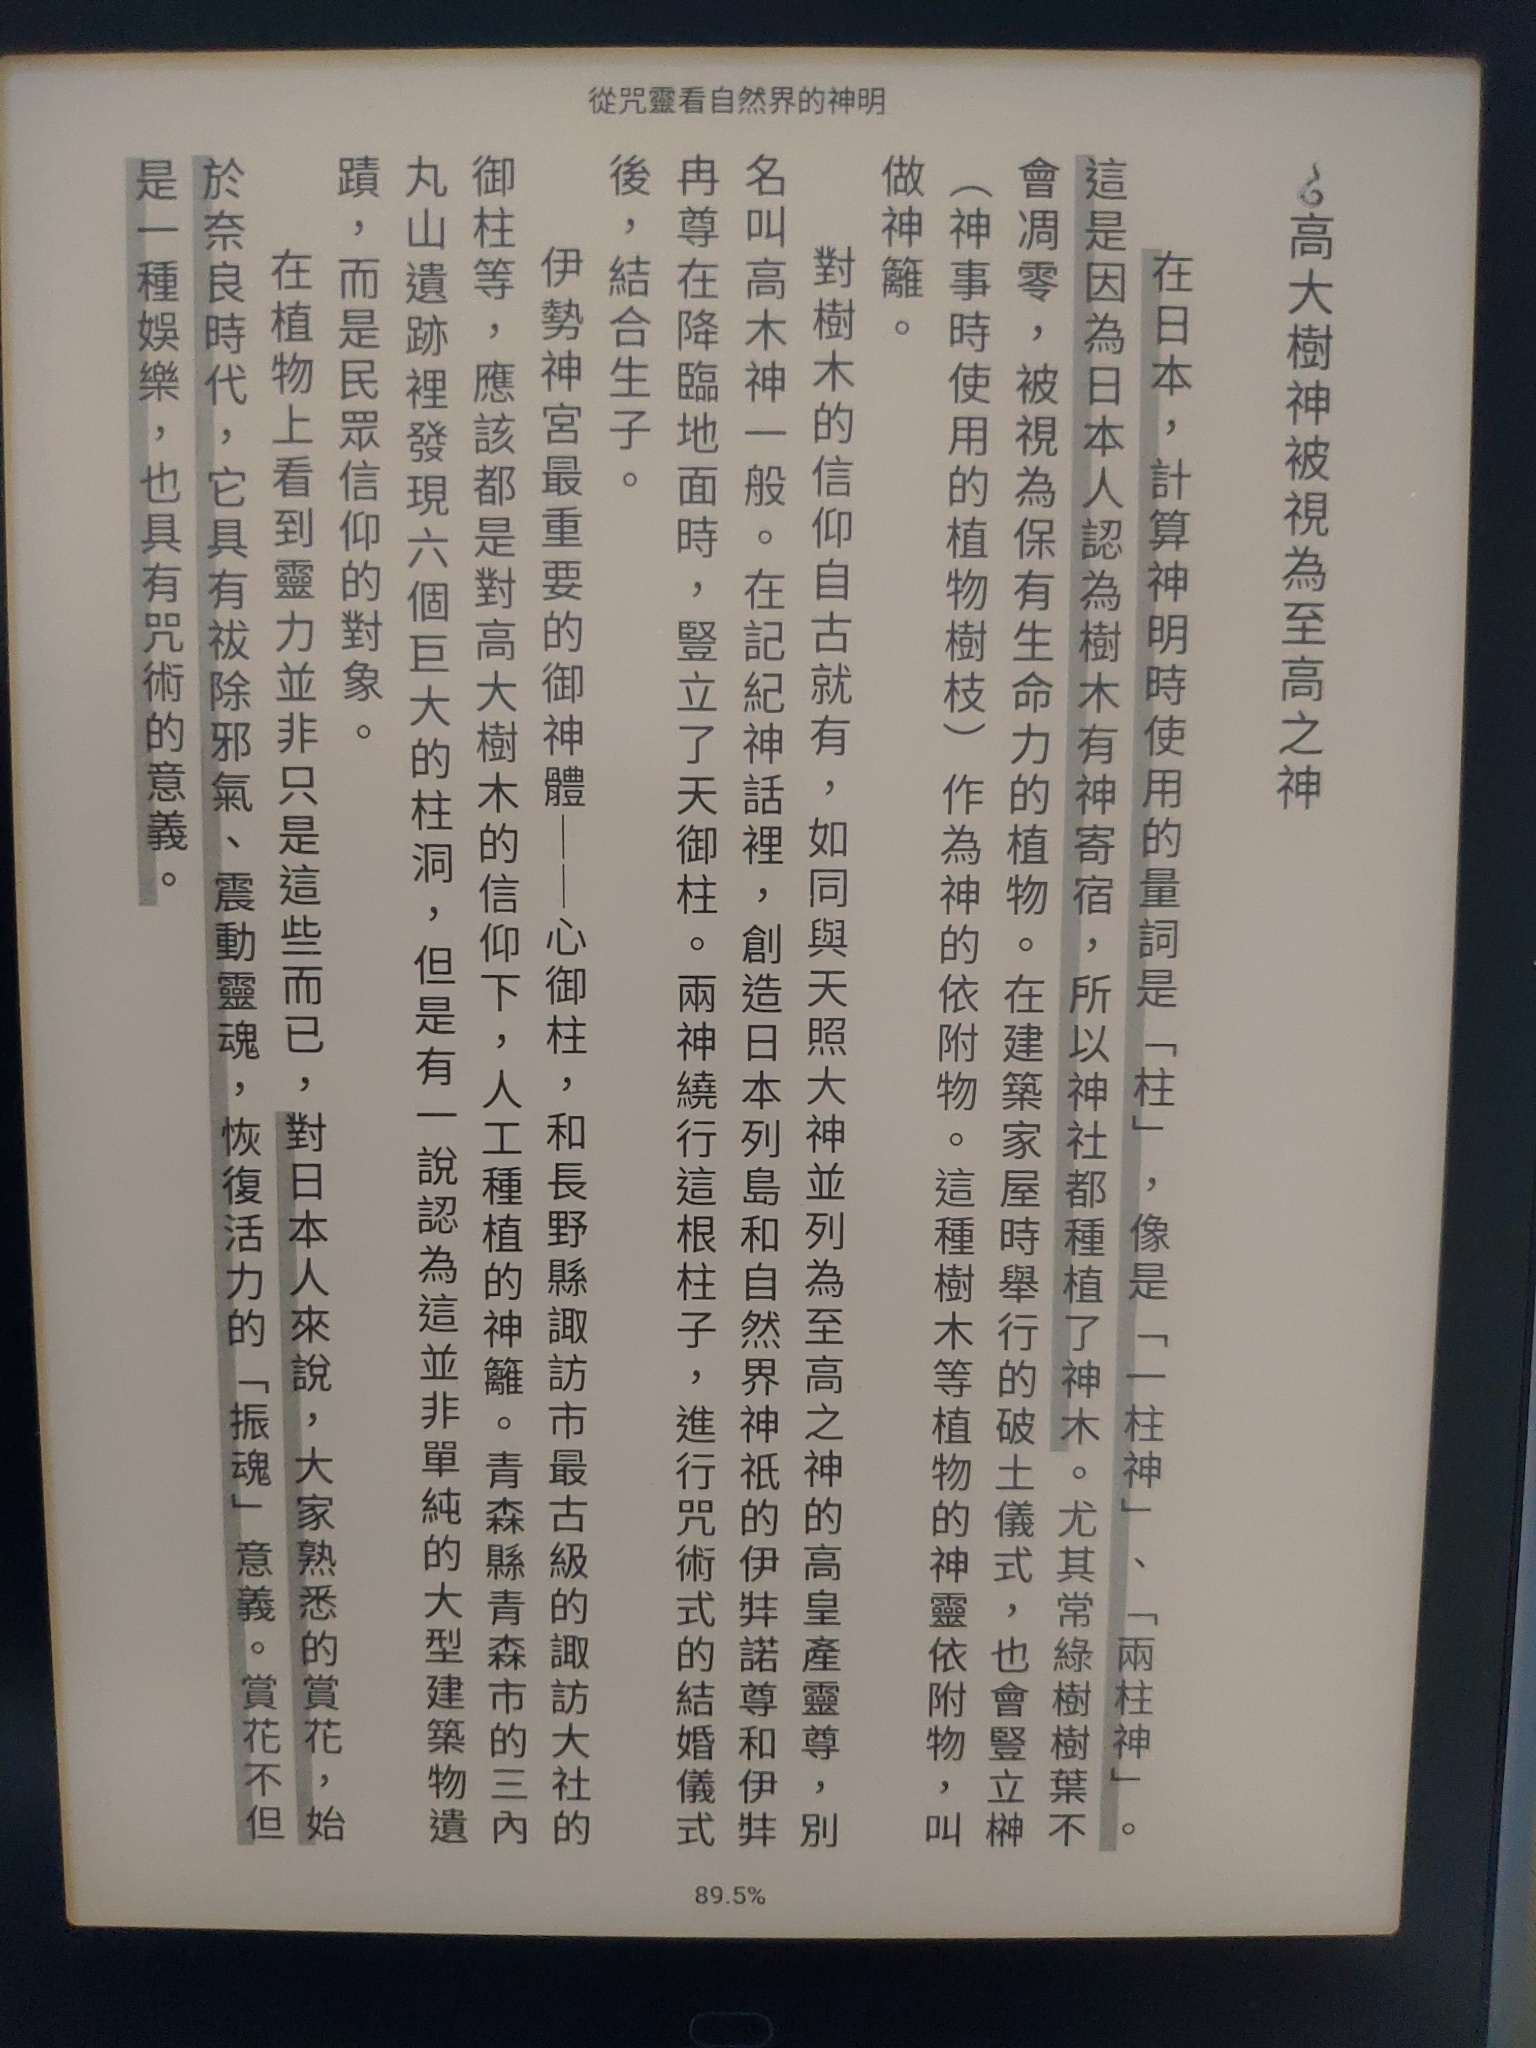 從咒靈看自然界的神明
高大樹神被視為至高之神
在日本，計算神明時使用的量詞是「柱」，像是「一柱神」、「兩柱神」。
這是因為日本人認為樹木有神寄宿，所以神社都種植了神木。尤其常綠樹樹葉不
會凋零，被視為保有生命力的植物。在建築家屋時舉行的破土儀式，也會豎立榊
（神事時使用的植物樹枝）作為神的依附物。這種樹木等植物的神靈依附物，叫
做神籬。
對樹木的信仰自古就有，如同與天照大神並列為至高之神的高皇產靈尊，別
名叫高木神一般。在記紀神話裡，創造日本列島和自然界神祇的伊弉諾尊和伊弉
冉尊在降臨地面時，豎立了天御柱。兩神繞行這根柱子，進行咒術式的結婚儀式
後，結合生子。
伊勢神宮最重要的御神體——心御柱，和長野縣諏訪市最古級的諏訪大社的
御柱等，應該都是對高大樹木的信仰下，人工種植的神籬。青森縣青森市的三內
丸山遺跡裡發現六個巨大的柱洞，但是有一說認為這並非單純的大型建築物遺
蹟，而是民眾信仰的對象。
在植物上看到靈力並非只是這些而已，對日本人來說，大家熟悉的賞花，始
於奈良時代，它具有祓除邪氣、震動靈魂，恢復活力的「振魂」意義。賞花不但
是一種娛樂，也具有咒術的意義。
89.5%